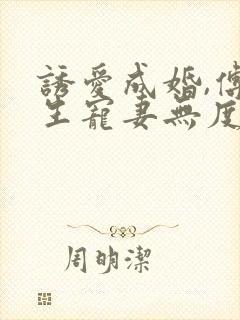 誘愛成婚,傅
生寵妻無度
周明潔